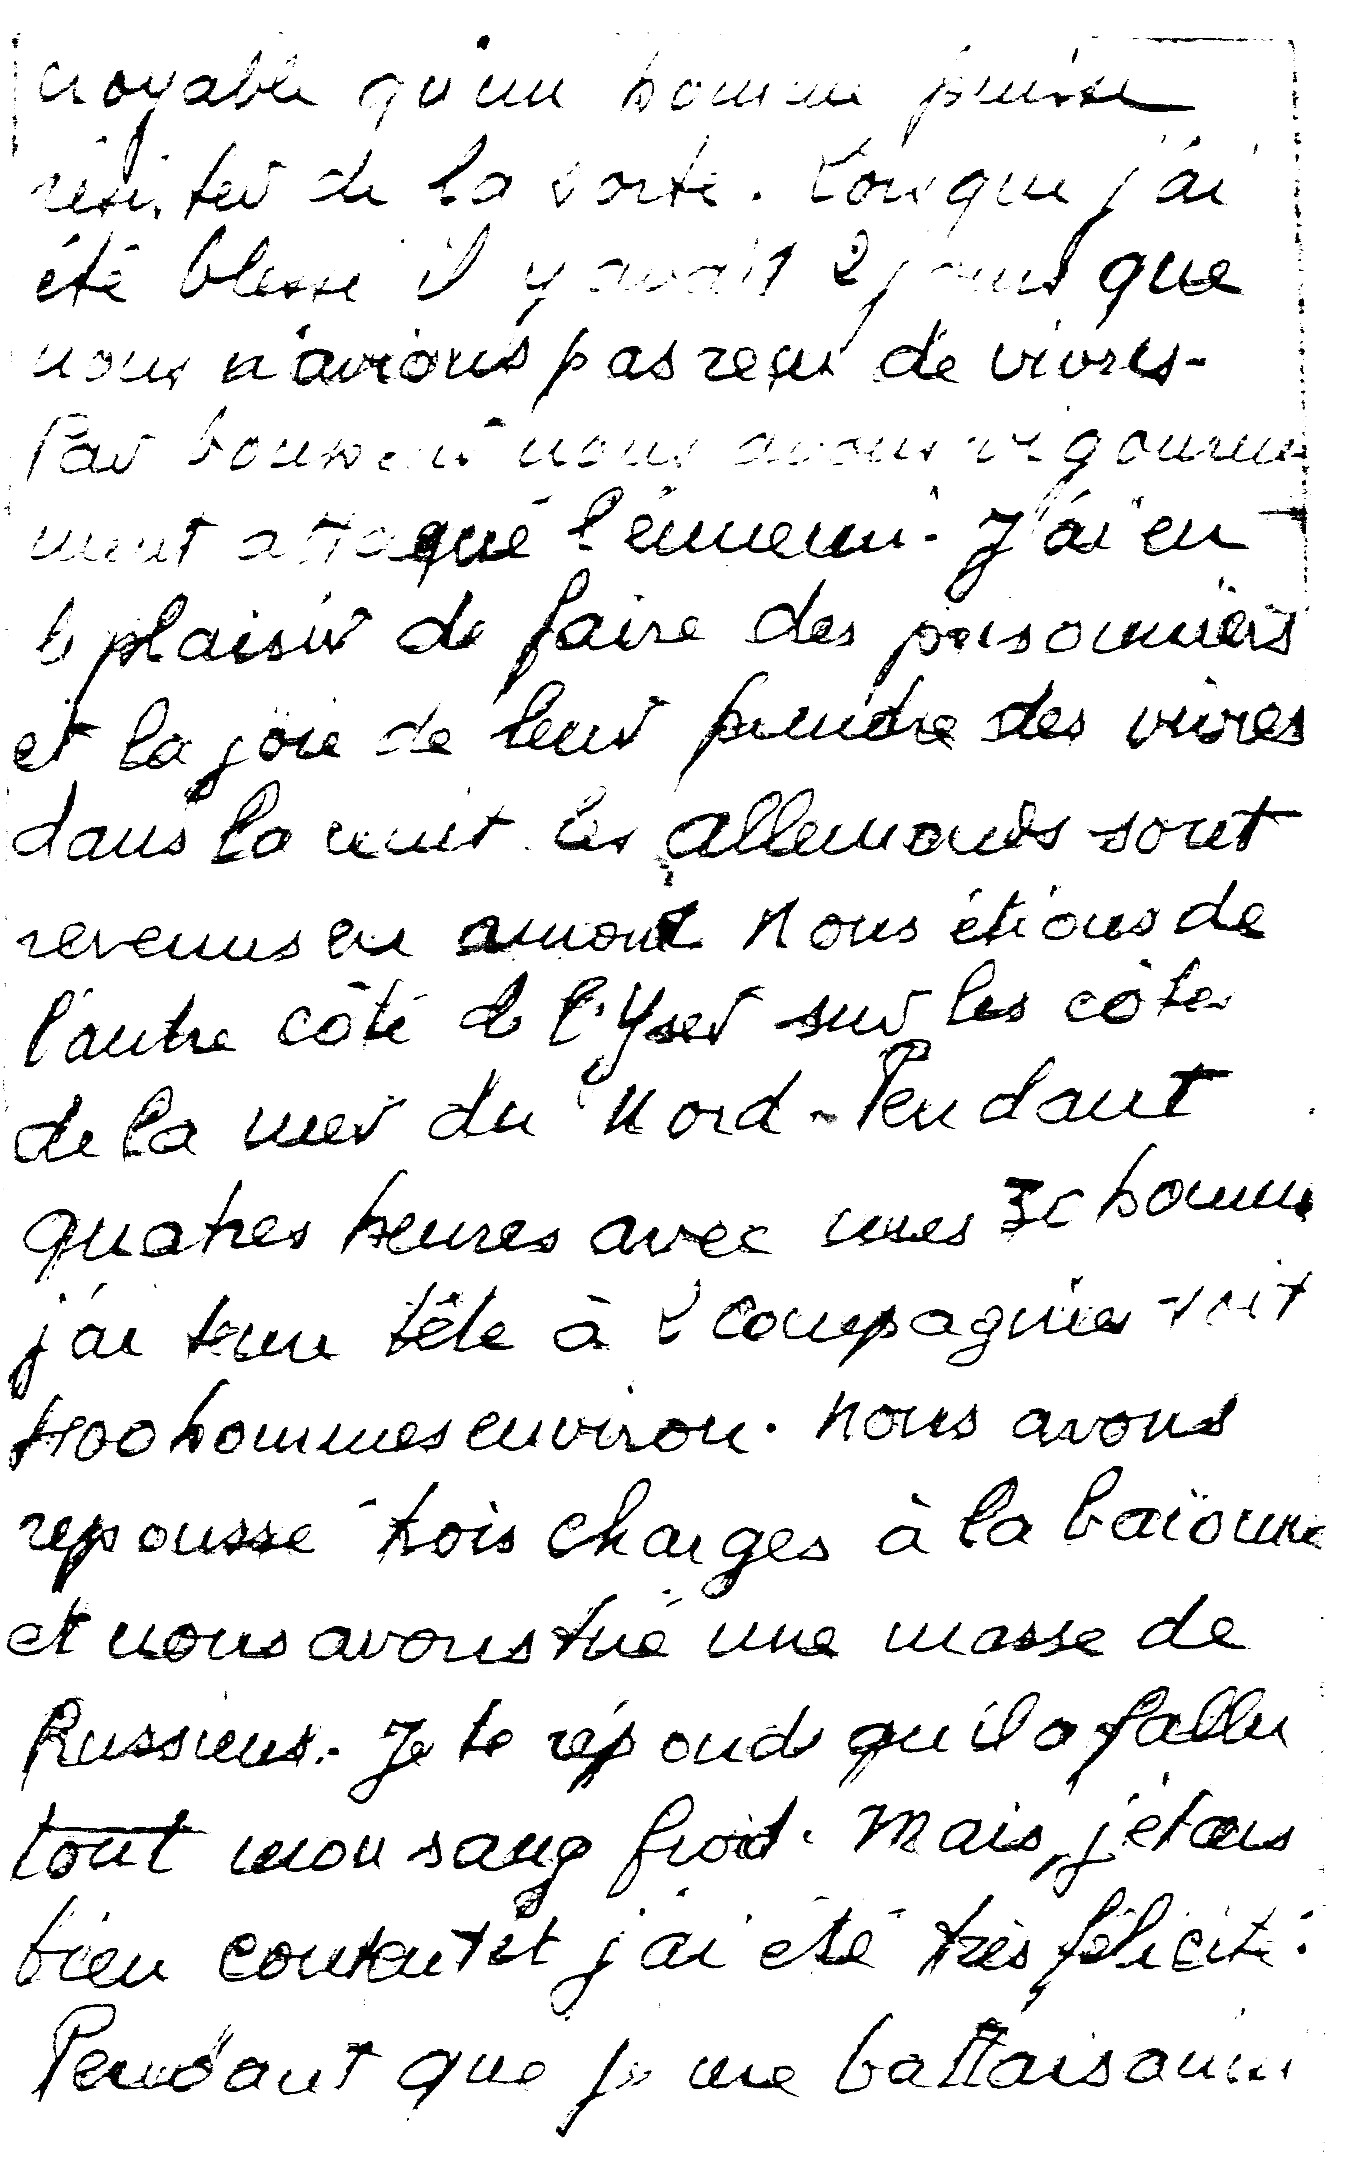 croyable qu'un homme puisse
résister de la sorte. Lorsque j'ai
été blessé il y avait 2 jours que
nous n'avions pas reçus de vivres -
Par bonheur nous avons vigoureuse
ment attaqué l'ennemi. J'ai eu
le plaisir de faire des prisonniers
et la joie de leur prendre des vivres
dans la nuit les allemands sont
revenus en amont Nous étions de
l'autre côté de l'Yser sur les côtes
de la mer du Nord - Pendant
quatres heures avec mes 30 hommes
j'ai tenu tête à 2 compagnies soit
400 hommes environ. Nous avons
repoussé trois charges à la baïonne
et nous avons tué une masse de
Prussiens. Je te réponds qu'il a fallu
tout mon sang froid. Mais, j'étais
bien content et j'ai été très félicité.
Pendant que je me battais ainsi